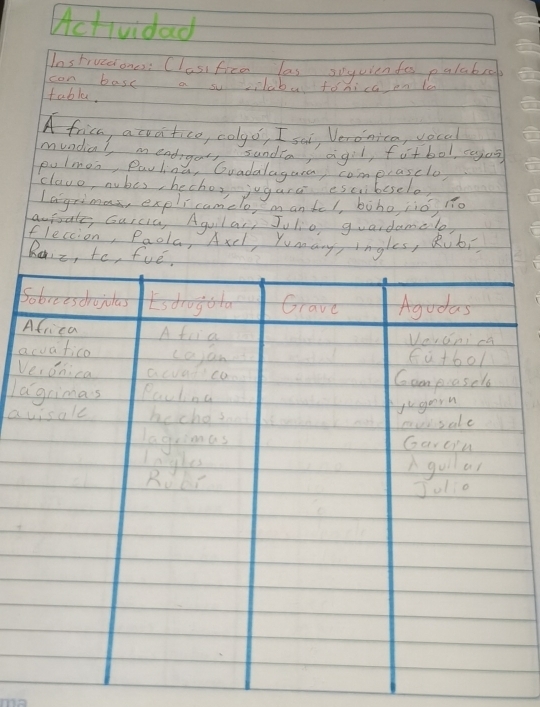 Actividad
Instrucciones: Clasifica las siguientes palabras
con base a su silaba tónica, en la
tabla.
África, acuática, colgó, Isaí, Verónica, vocal
mundial, mendigar, sandía, ágil, fútbol, cajón,
pulmón, Paulina, Guadalagara, compraselo,
clavo, nubes, hechos, jugará escribeselo,
Lagrimas, explicamelo, mantel, búho, rió, río
avisale, García, Aguilar, Julio, guardamelo,
fleccion, Paola, Axel, Yumary, ingles, Rubí
Raíz, te, fué.
Sobreesdrujulas Esdrugúla Grave Agudas
Africa Africa Verónica
acuatico cajón Fútbol
Verónica acuatico Compraselo
lágrimas Paulina
avisale hechos
lagrimas García
Ingles Aguilar
Rubí Julio